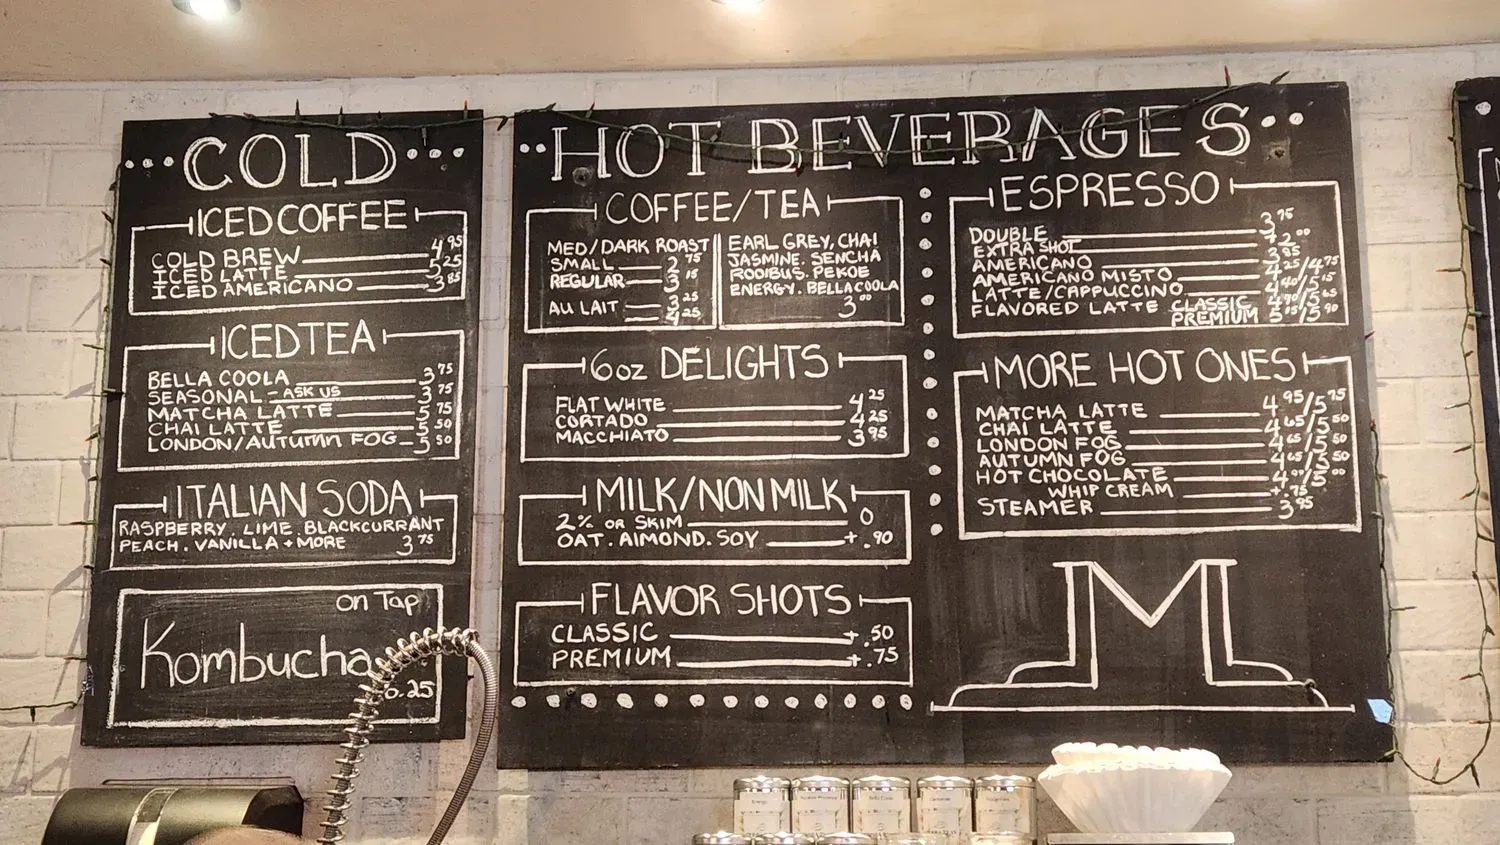 COLD
ICED COFFEE
COLD BREW 4.95
ICED LATTE 5.25
ICED AMERICANO 3.85
ICED TEA
BELLA COOLA 3.75
SEASONAL - ASK US 3.75
MATCHA LATTE 5.75
CHAI LATTE 5.50
LONDON/AUTUMN FOG 5.50
ITALIAN SODA
RASPBERRY. LIME. BLACKCURRANT
PEACH. VANILLA + MORE 3.75
on Tap
Kombucha
6.25
HOT BEVERAGES
COFFEE/TEA
MED/DARK ROAST
SMALL 2.75
REGULAR 3.15
AU LAIT 3.25
4.25
EARL GREY, CHAI
JASMINE. SENCHA
ROOIBUS. PEKOE
ENERGY. BELLACOOLA
3.00
6oz DELIGHTS
FLAT WHITE 4.25
CORTADO 4.25
MACCHIATO 3.95
MILK/NON MILK
2% OR SKIM 0
OAT. AlMOND. SOY + .90
FLAVOR SHOTS
CLASSIC + .50
PREMIUM + .75
ESPRESSO
DOUBLE 3.75
EXTRA SHOT +2.00
AMERICANO 3.85
AMERICANO MISTO 4.25/4.75
LATTE/CAPPUCCINO 4.40/5.15
FLAVORED LATTE CLASSIC 4.90/5.65
PREMIUM 5.15/5.90
MORE HOT ONES
MATCHA LATTE 4.95/5.75
CHAI LATTE 4.65/5.50
LONDON FOG 4.65/5.50
AUTUMN FOG 4.65/5.50
HOT CHOCOLATE 4.90/5.00
WHIP CREAM +.75
STEAMER 3.95
M